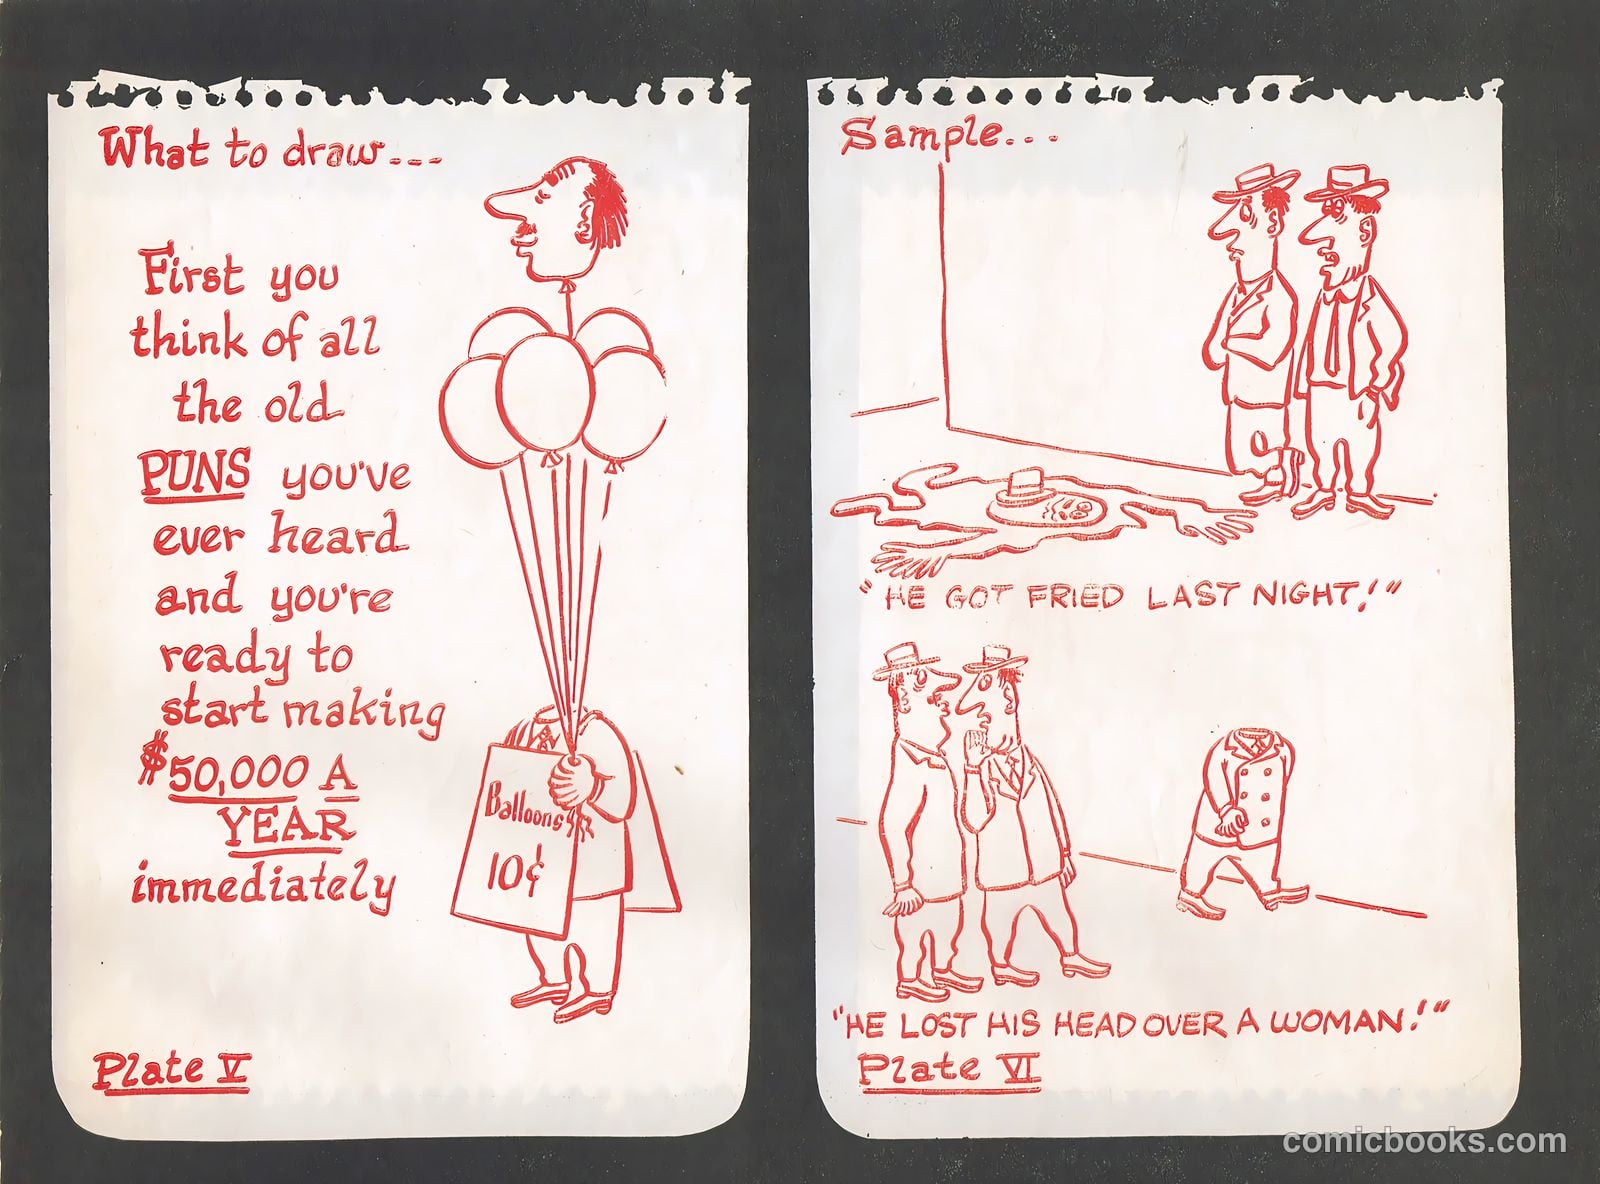 What to draw...
First you
think of all
the old
PUNS you've
ever heard
and you're
ready to
start making
$50,000 A
YEAR
immediately
Balloons
10¢
Plate V
Sample...
"HE GOT FRIED LAST NIGHT!"
"HE LOST HIS HEAD OVER A WOMAN!"
Plate VI
comicbooks.com